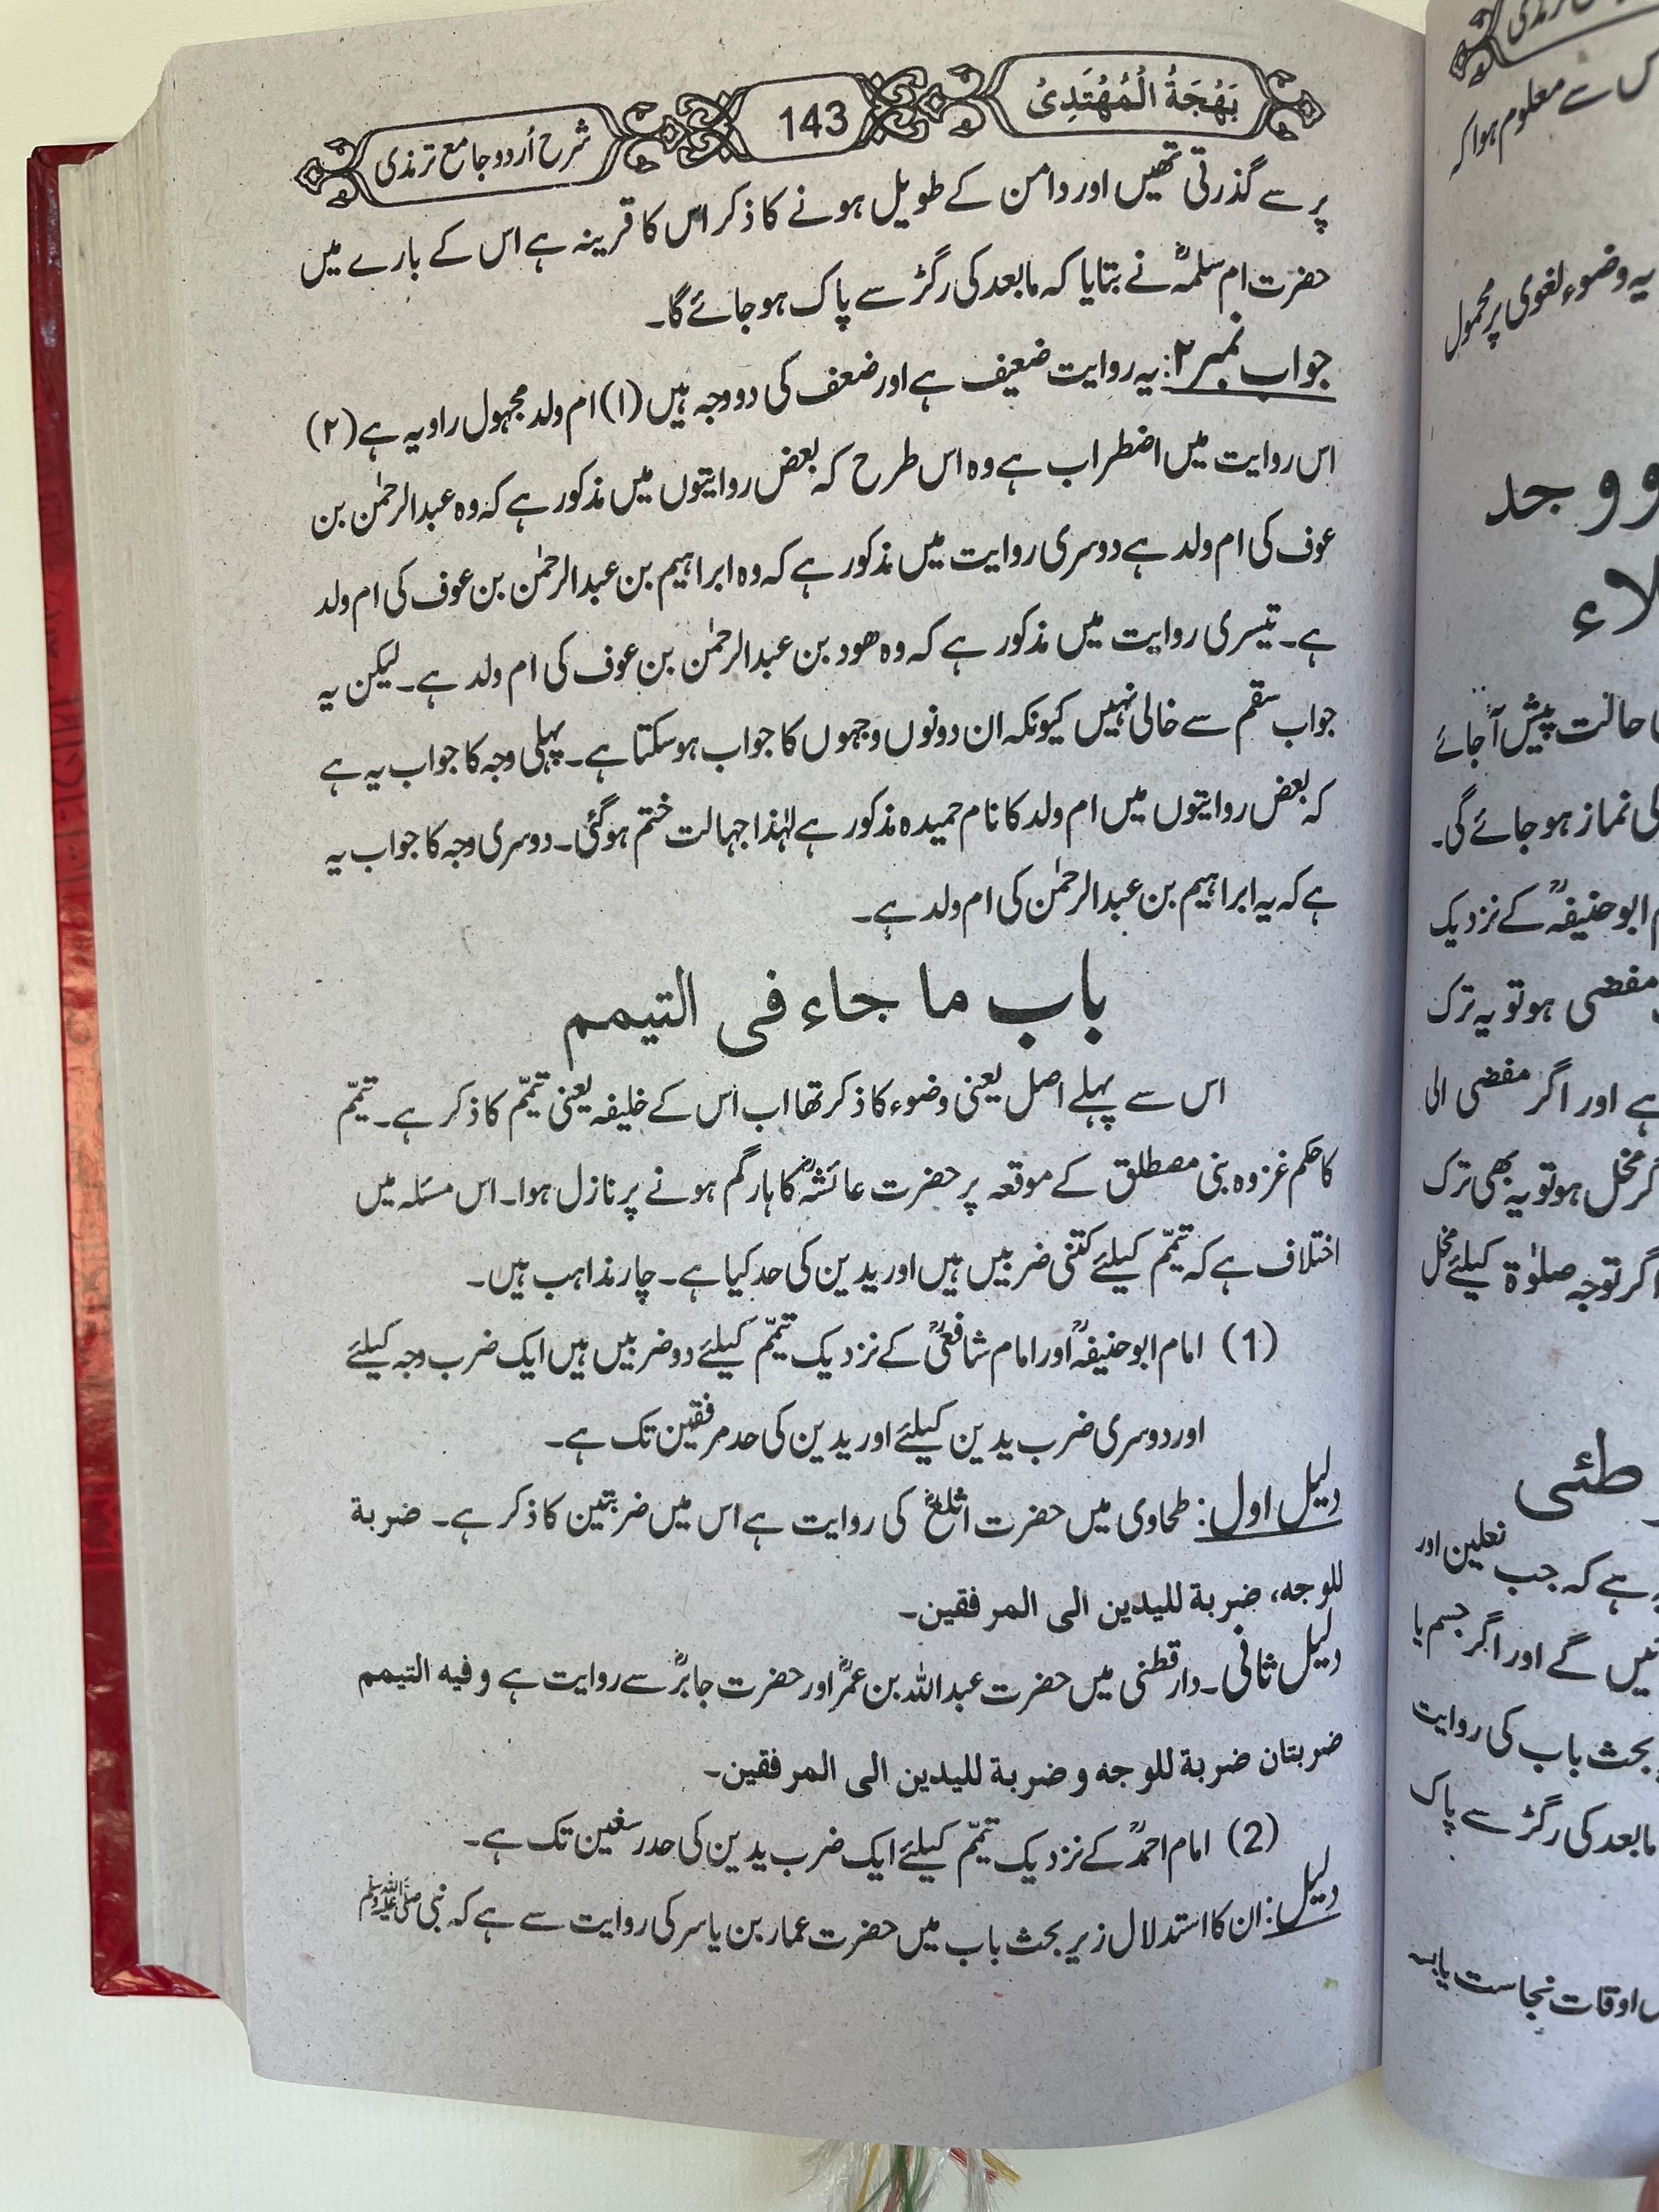 بَهْجَةُ الْمُهْتَدِیْ
143
شرح اُردو جامع ترمذی
پر سے گذرتی تھیں اور دامن کے طویل ہونے کا ذکر اس کا قرینہ ہے اس کے بارے میں
حضرت ام سلمہؓ نے بتایا کہ مابعد کی رگڑ سے پاک ہو جائے گا۔
جواب نمبر۲: یہ روایت ضعیف ہے اور ضعف کی دو وجہ ہیں (۱) ام ولد مجہول راویہ ہے (۲)
اس روایت میں اضطراب ہے وہ اس طرح کہ بعض روایتوں میں مذکور ہے کہ وہ عبدالرحمٰن بن
عوف کی ام ولد ہے دوسری روایت میں مذکور ہے کہ وہ ابراہیم بن عبدالرحمٰن بن عوف کی ام ولد
ہے۔ تیسری روایت میں مذکور ہے کہ وہ ھود بن عبدالرحمٰن بن عوف کی ام ولد ہے۔ لیکن یہ
جواب سقم سے خالی نہیں کیونکہ ان دونوں وجہوں کا جواب ہو سکتا ہے۔ پہلی وجہ کا جواب یہ ہے
کہ بعض روایتوں میں ام ولد کا نام حمیدہ مذکور ہے لہٰذا جہالت ختم ہو گئی۔ دوسری وجہ کا جواب یہ
ہے کہ یہ ابراہیم بن عبدالرحمٰن کی ام ولد ہے۔
باب ما جاء فی التیمم
اس سے پہلے اصل یعنی وضوء کا ذکر تھا اب اس کے خلیفہ یعنی تیمّم کا ذکر ہے۔ تیمّم
کا حکم غزوہ بنی مصطلق کے موقعہ پر حضرت عائشہؓ کا ہار گم ہونے پر نازل ہوا۔ اس مسئلہ میں
اختلاف ہے کہ تیمّم کیلئے کتنی ضربیں ہیں اور یدین کی حد کیا ہے۔ چار مذاہب ہیں۔
(1) امام ابو حنیفہؒ اور امام شافعیؒ کے نزدیک تیمّم کیلئے دو ضربیں ہیں ایک ضرب وجہ کیلئے
اور دوسری ضرب یدین کیلئے اور یدین کی حد مرفقین تک ہے۔
دلیل اول: طحاوی میں حضرت اثلعؓ کی روایت ہے اس میں ضربتین کا ذکر ہے۔ ضربة
للوجه، ضربة للیدین الی المرفقین۔
دلیل ثانی۔ دارقطنی میں حضرت عبداللہ بن عمرؓ اور حضرت جابرؓ سے روایت ہے وفیه التیمم
ضربتان ضربة للوجه و ضربة للیدین الی المرفقین۔
(2) امام احمدؒ کے نزدیک تیمّم کیلئے ایک ضرب یدین کی حد رسغین تک ہے۔
دلیل: ان کا استدلال زیر بحث باب میں حضرت عمار بن یاسر کی روایت سے ہے کہ نبی ﷺ
س سے معلوم ہوا کہ
یہ وضوء لغوی پر محمول
و وجد
لاء
حالت پیش آ جائے
کی نماز ہو جائے گی۔
ابو حنیفہؒ کے نزدیک
مفضی ہو تو یہ ترک
ہے اور اگر مفضی الی
مخل ہو تو یہ بھی ترک
اگر توجہ صلوٰۃ کیلئے مخل
طئی
ہے کہ جب نعلین اور
گے اور اگر جسم یا
بحث باب کی روایت
مابعد کی رگڑ سے پاک
اوقات نجاست یابسہ